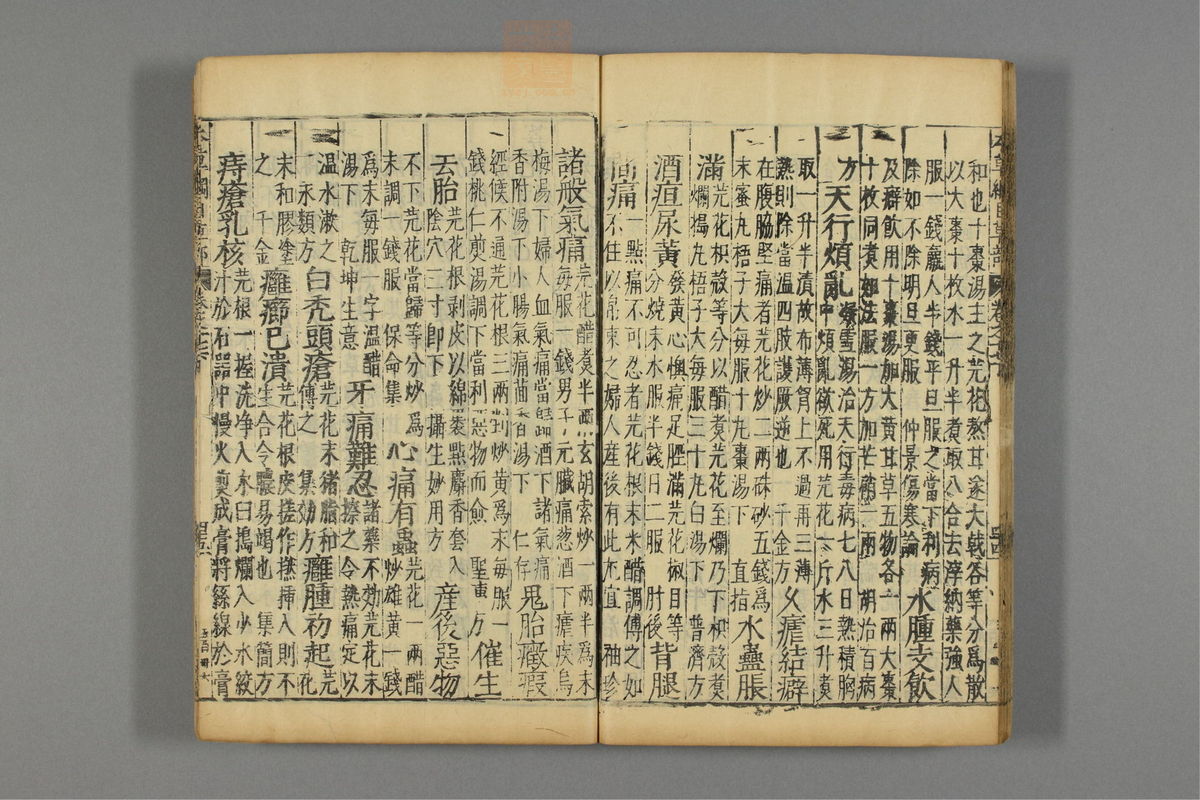 和也十棗湯主之芫花熬甘遂大戟各等分爲散
以大棗十枚水一升半煮取八合去滓納藥強人
服一錢羸人半錢平旦服之當下利病
除如不除明旦更服 仲景傷寒論 水腫支飲
及癖飲用十棗湯加大黄甘草五物各一兩大棗
十枚同煮如法服一方加芒硝一兩 胡治百病
方 天行煩亂 凝雪湯治天行毒病七八日熱積胸
中煩亂欲死用芫花一斤水三升煮
取一升半漬故布薄胷上不過再三薄
熱則除當温四肢護厥逆也 千金方 久瘧結癖
在腹脇堅痛者芫花炒二兩硃砂五錢爲
末蜜丸梧子大每服十丸棗湯下 直指 水蠱脹
滿 芫花枳殻等分以醋煮芫花至爛乃下枳殻煮
爛搗丸梧子大每服三十丸白湯下 普濟方
酒疸尿黄 發黄心懊痛足脛滿芫花椒目等
分燒末水服半錢日二服 肘後 背腿
間痛 一點痛不可忍者芫花根末米醋調傅之如
不住以帛束之婦人産後有此尤宜 袖珍
諸般氣痛 芫花醋煮半兩玄胡索炒一兩半爲末
每服一錢男子元臟痛葱酒下瘧疾烏
梅湯下婦人血氣痛當歸酒下諸氣痛
香附湯下小腸氣痛茴香湯下 仁存 鬼胎癥瘕
經候不通芫花根三兩剉炒黄爲末每服一
錢桃仁煎湯調下當利惡物而愈 聖惠方 催生
去胎 芫花根剥皮以綿裹點麝香套入
陰穴三寸即下 攝生妙用方 産後惡物
不下 芫花當歸等分炒爲
末調一錢服 保命集 心痛有蟲 芫花一兩醋
炒雄黄一錢
爲末每服一字温醋
湯下 乾坤生意 牙痛難忍 諸藥不効芫花末
擦之令熱痛定以
温水漱之
永類方 白秃頭瘡 芫花末猪脂和
傅之 集効方 癰腫初起 芫
花
末和膠塗
之 千金 癰癤已潰 芫花根皮搓作撚揷入則不
生合令膿易竭也 集簡方
痔瘡乳核 芫根一握洗净入木臼搗爛入少水絞
汁於石器中慢火煎成膏將絲線於膏